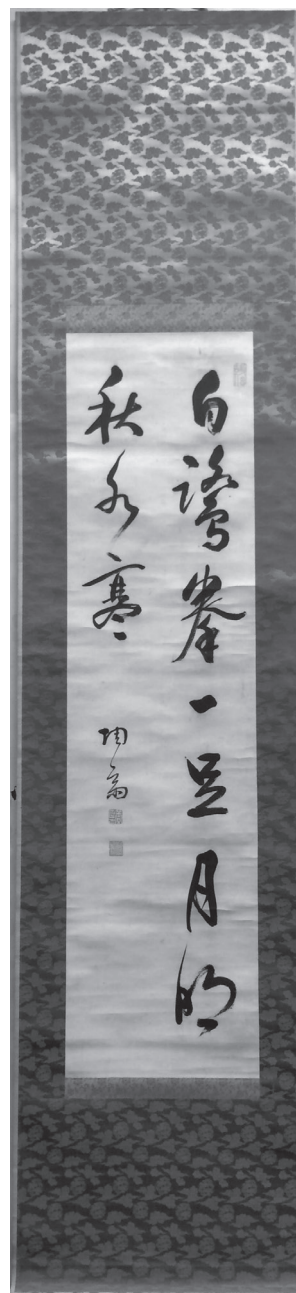 白鷺拳一足月明
秋水寒
陶齋